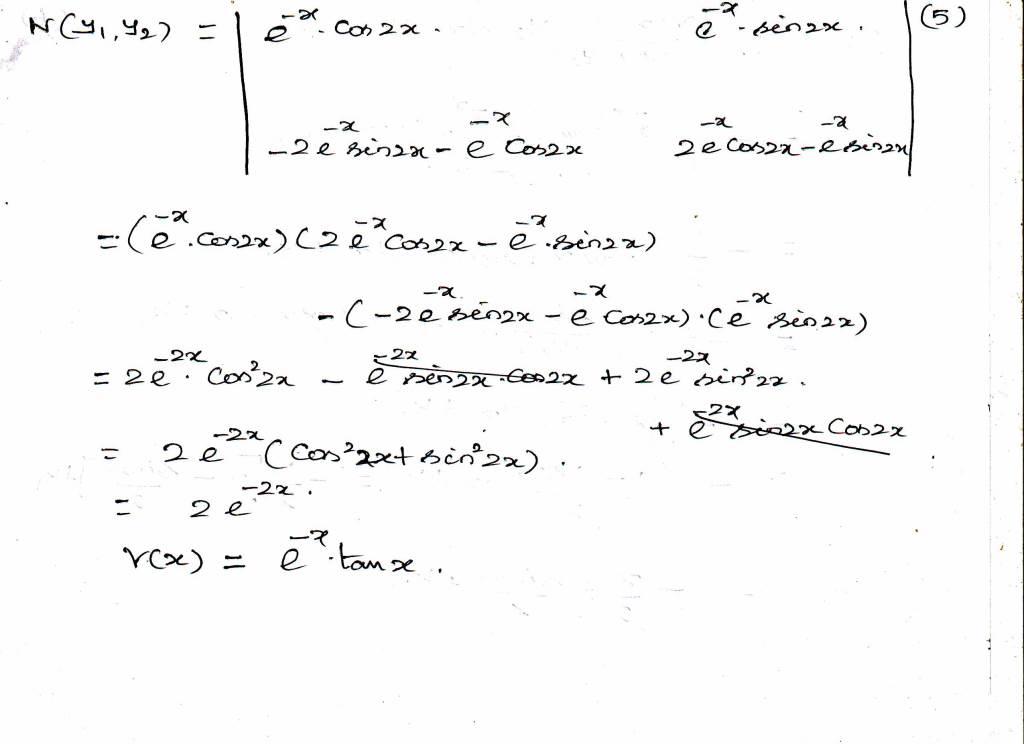 W(y₁, y₂) = | e^{-x}.cos2x. e^{-x}.sin2x. | (5)
-2e^{-x}sin2x - e^{-x}Cos2x 2e^{-x}Cos2x - e^{-x}sin2x
=(e^{-x}.cos2x)(2e^{-x}cos2x - e^{-x}.sin2x)
-(-2e^{-x}sin2x - e^{-x}cos2x).(e^{-x}sin2x)
= 2e^{-2x}.Cos²2x - e^{-2x}sin2x.cos2x + 2e^{-2x}sin²2x.
+ e^{-2x}sin2x Cos2x
= 2e^{-2x}(Cos²2x + sin²2x).
= 2e^{-2x}.
r(x) = e^{-x}.tanx.